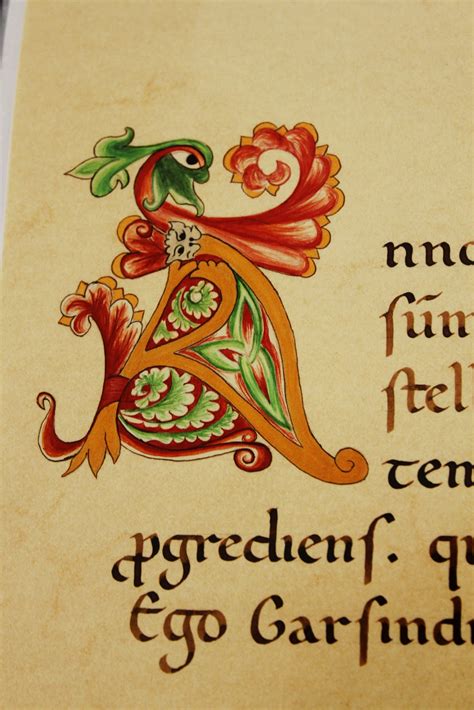 Anno
ſūm
ſtell
tem
ꝓgredienſ. qu
Ego Garſind